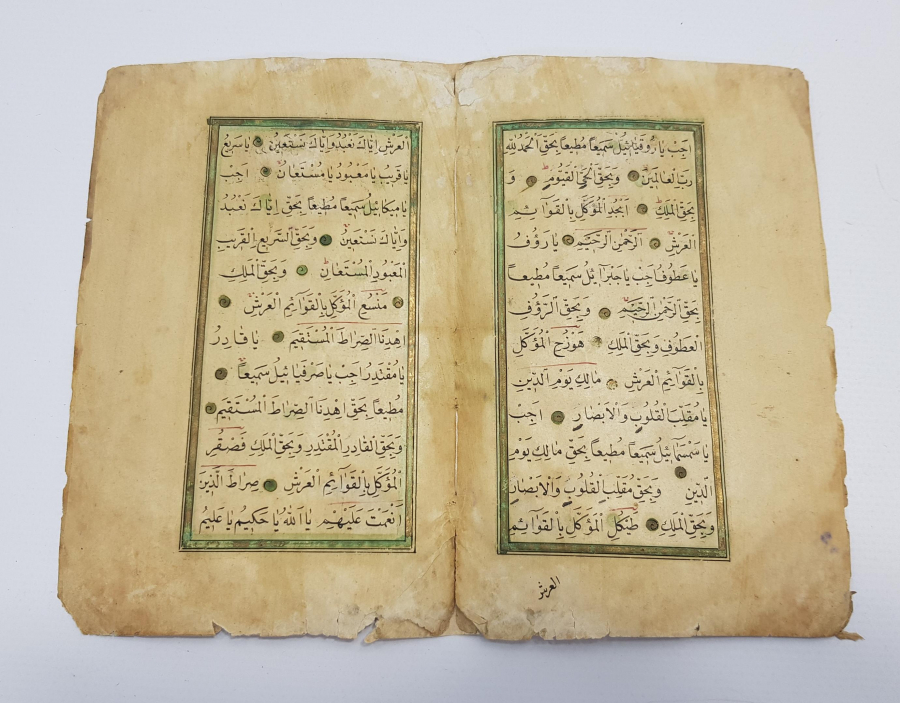 اَجِبْ يَا رُوقَيَائِيلُ سَمِيعاً مُطِيعاً بِحَقِّ اَلْحَمْدُ لِلّٰهِ
رَبِّ الْعَالَمِينَ وَبِحَقِّ الْحَيِّ الْقَيُّومِ وَ
بِحَقِّ الْمَلِكِ اَبْجَدِ الْمُؤَكَّلِ بِالْقَوَائِمِ
الْعَرْشِ اَلرَّحْمٰنِ الرَّحِيمِ يَا رَؤُفُ
يَا عَطُوفُ اَجِبْ يَا جَبْرَائِيلُ سَمِيعاً مُطِيعاً
بِحَقِّ الرَّحْمٰنِ الرَّحِيمِ وَبِحَقِّ الرَّؤُفِ
الْعَطُوفِ وَبِحَقِّ الْمَلِكِ هَوْزَحِ الْمُؤَكَّلِ
بِالْقَوَائِمِ الْعَرْشِ مَالِكِ يَوْمِ الدِّينِ
يَا مُقَلِّبَ الْقُلُوبِ وَالْاَبْصَارِ اَجِبْ
يَا سَمْسَمَائِيلُ سَمِيعاً مُطِيعاً بِحَقِّ مَالِكِ يَوْمِ
الدِّينِ وَبِحَقِّ مُقَلِّبِ الْقُلُوبِ وَالْاَبْصَارِ
وَبِحَقِّ الْمَلِكِ طَيْكَلِ الْمُؤَكَّلِ بِالْقَوَائِمِ
العرش
الْعَرْشِ اِيَّاكَ نَعْبُدُ وَاِيَّاكَ نَسْتَعِينُ يَا سَرِيعُ
يَا قَرِيبُ يَا مَعْبُودُ يَا مُسْتَعَانُ اَجِبْ
يَا مِيكَائِيلُ سَمِيعاً مُطِيعاً بِحَقِّ اِيَّاكَ نَعْبُدُ
وَاِيَّاكَ نَسْتَعِينُ وَبِحَقِّ السَّرِيعِ الْقَرِيبِ
الْمَعْبُودِ الْمُسْتَعَانِ وَبِحَقِّ الْمَلِكِ
مَنْسَعِ الْمُؤَكَّلِ بِالْقَوَائِمِ الْعَرْشِ
اِهْدِنَا الصِّرَاطَ الْمُسْتَقِيمَ يَا قَادِرُ
يَا مُقْتَدِرُ اَجِبْ يَا صَرْفَيَائِيلُ سَمِيعاً
مُطِيعاً بِحَقِّ اِهْدِنَا الصِّرَاطَ الْمُسْتَقِيمَ
وَبِحَقِّ الْقَادِرِ الْمُقْتَدِرِ وَبِحَقِّ الْمَلِكِ فَصْقَرِ
الْمُؤَكَّلِ بِالْقَوَائِمِ الْعَرْشِ صِرَاطَ الَّذِينَ
اَنْعَمْتَ عَلَيْهِمْ يَا اَللّٰهُ يَا حَكِيمُ يَا عَلِيمُ